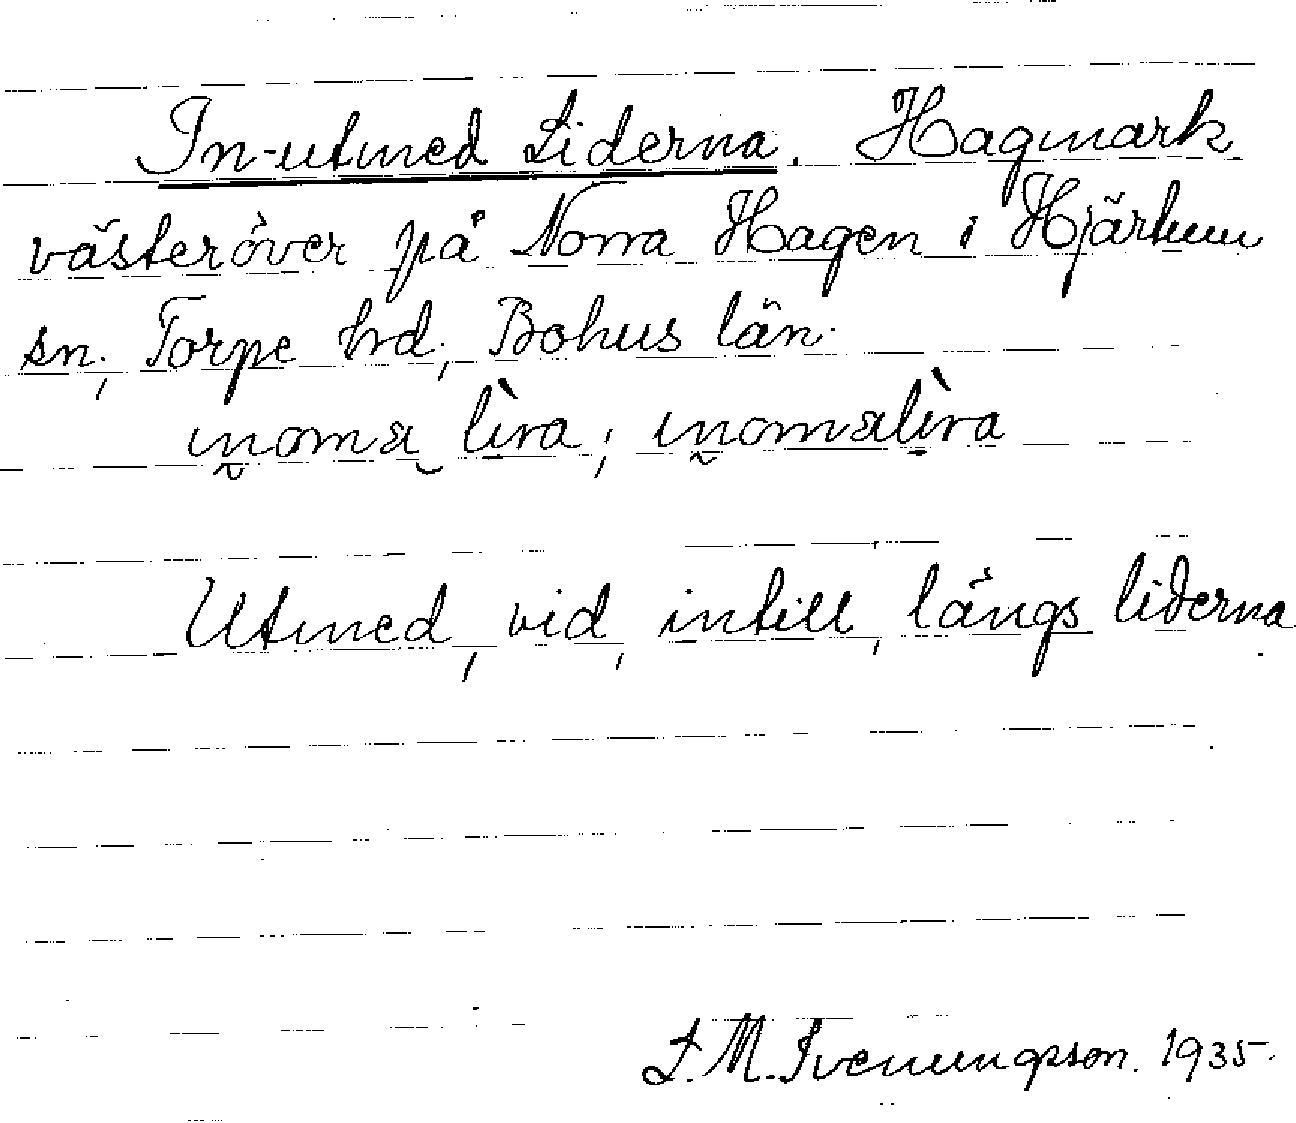 In-utmed Liderna. Hagmark
västeröver på Norra Hagen i Hjärtum
sn, Torpe hrd, Bohus län.
Utmed, vid, intill, längs liderna.
L. M. Svenungsson. 1935.